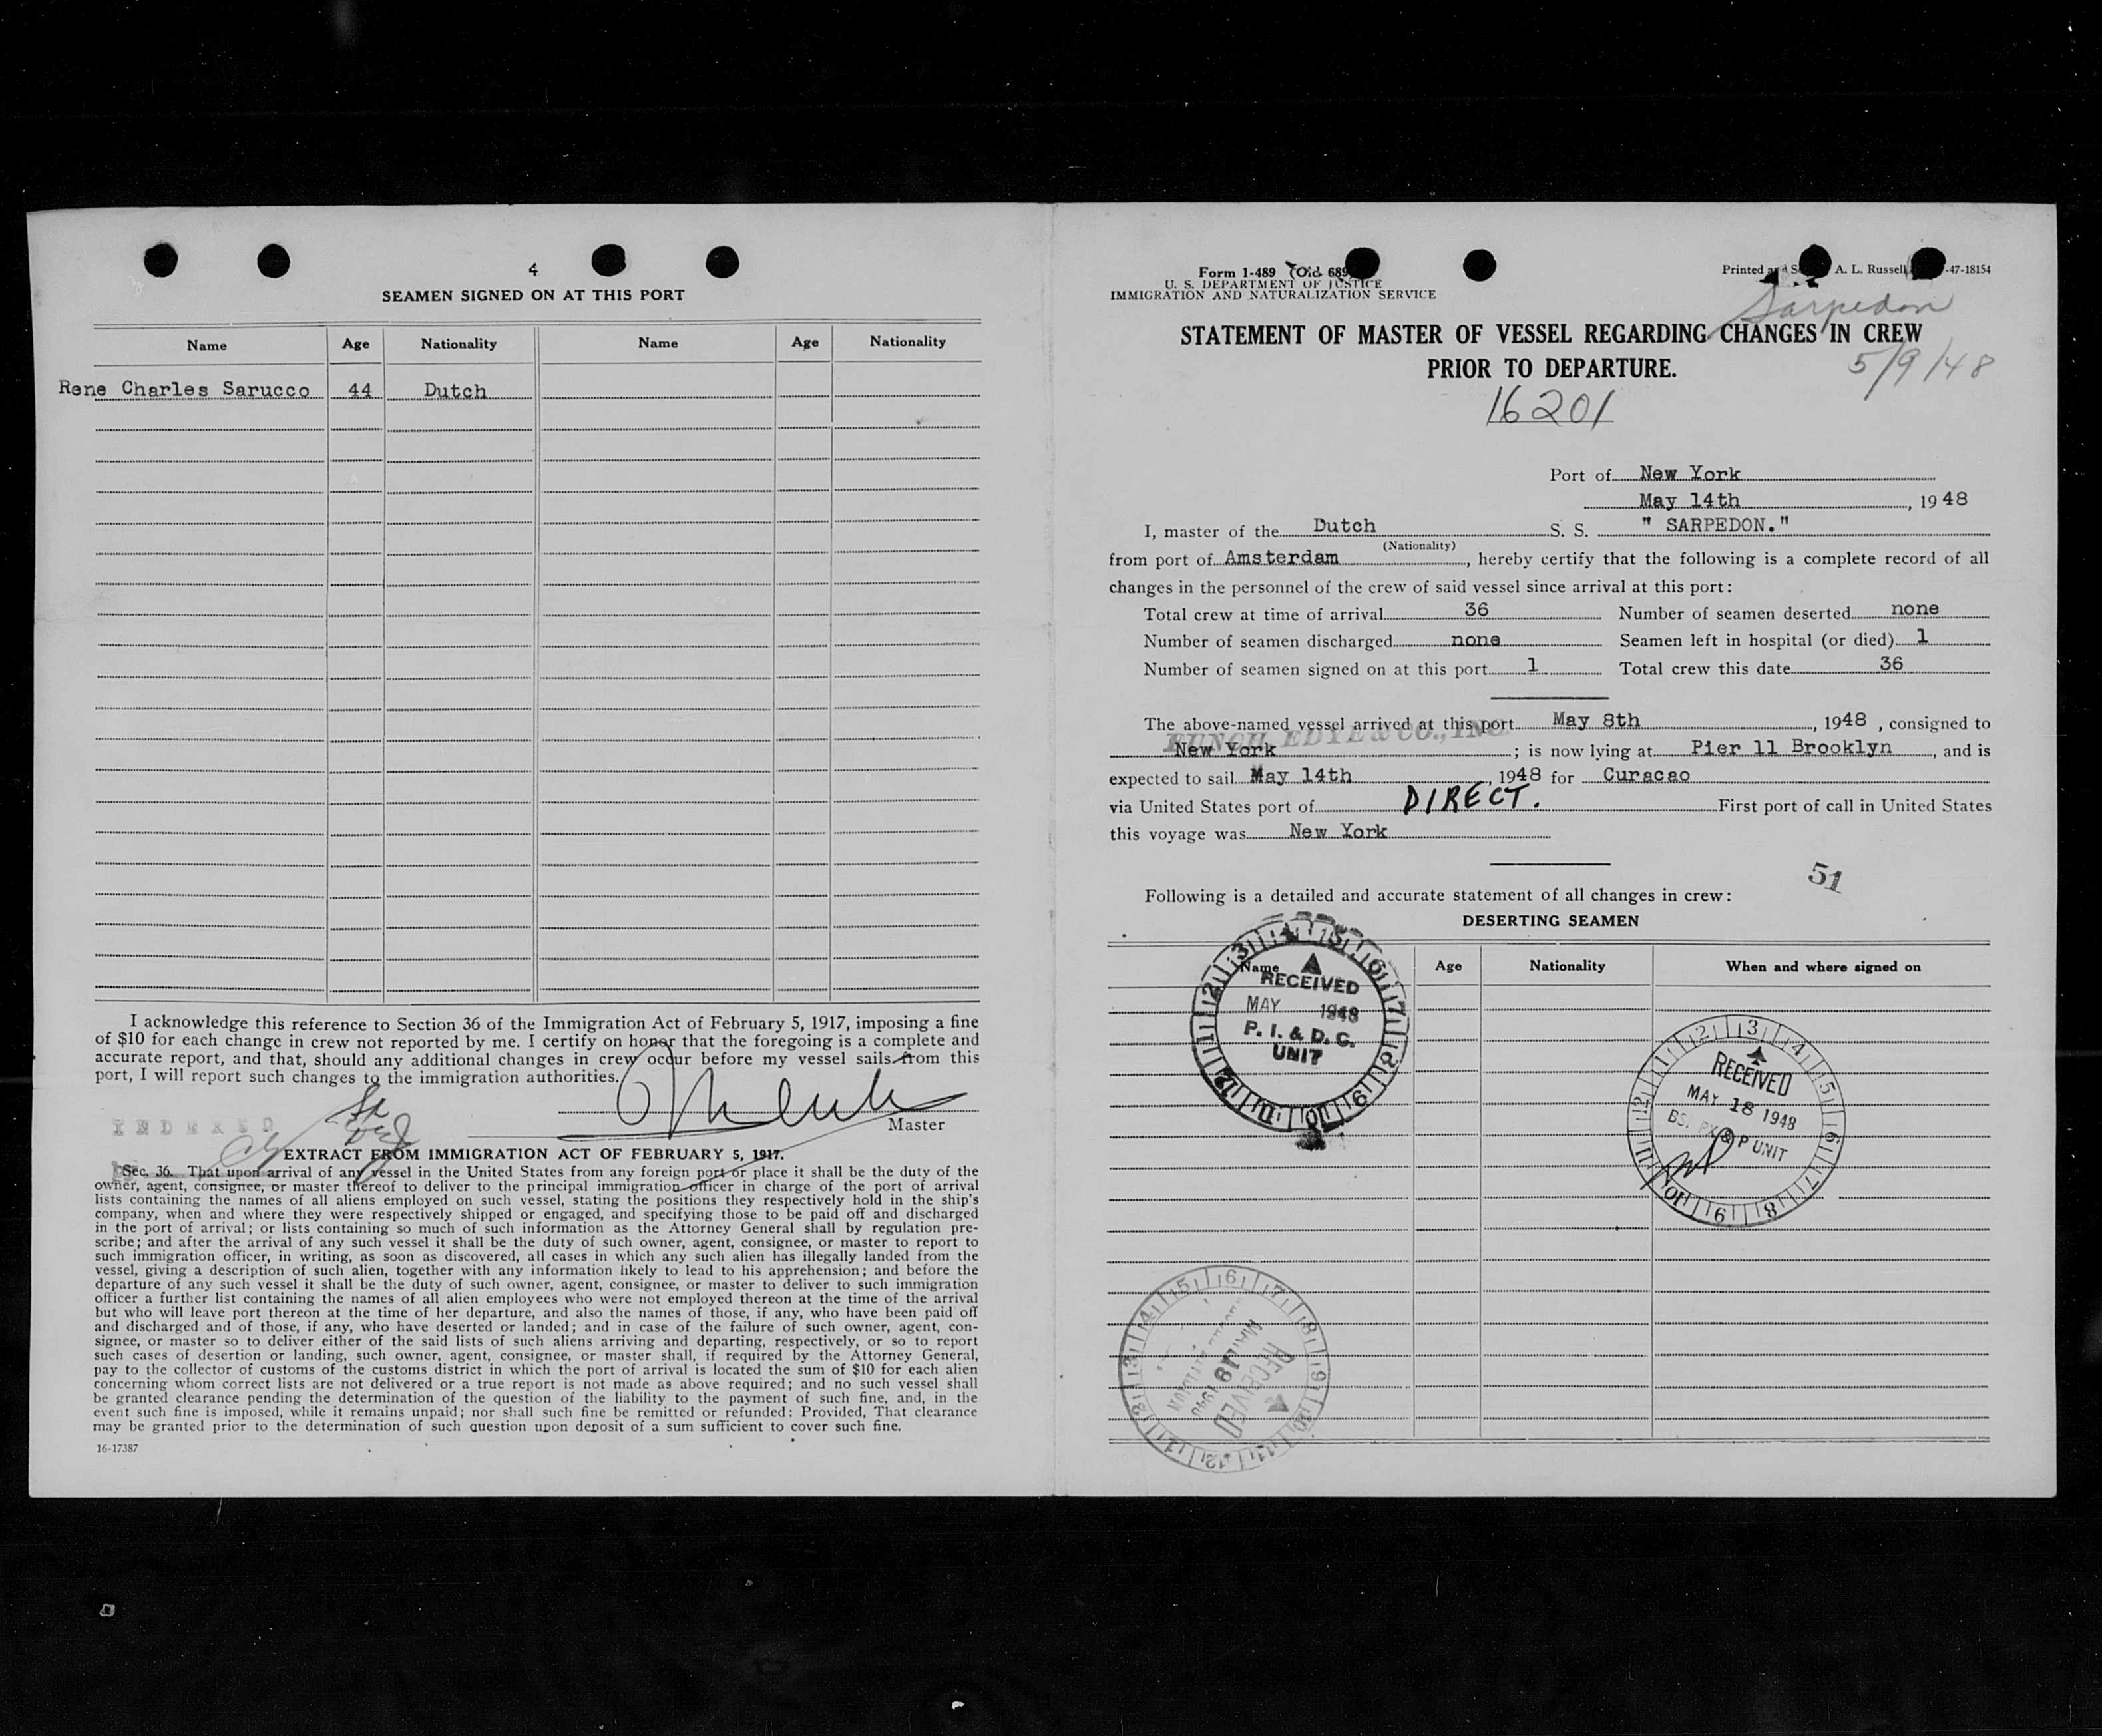 4
SEAMEN SIGNED ON AT THIS PORT
Name Age Nationality Name Age Nationality
Rene Charles Sarucco 44 Dutch
I acknowledge this reference to Section 36 of the Immigration Act of February 5, 1917, imposing a fine
of $10 for each change in crew not reported by me. I certify on honor that the foregoing is a complete and
accurate report, and that, should any additional changes in crew occur before my vessel sails from this
port, I will report such changes to the immigration authorities.
INDEXED
Master
EXTRACT FROM IMMIGRATION ACT OF FEBRUARY 5, 1917.
Sec. 36. That upon arrival of any vessel in the United States from any foreign port or place it shall be the duty of the
owner, agent, consignee, or master thereof to deliver to the principal immigration officer in charge of the port of arrival
lists containing the names of all aliens employed on such vessel, stating the positions they respectively hold in the ship's
company, when and where they were respectively shipped or engaged, and specifying those to be paid off and discharged
in the port of arrival; or lists containing so much of such information as the Attorney General shall by regulation pre-
scribe; and after the arrival of any such vessel it shall be the duty of such owner, agent, consignee, or master to report to
such immigration officer, in writing, as soon as discovered, all cases in which any such alien has illegally landed from the
vessel, giving a description of such alien, together with any information likely to lead to his apprehension; and before the
departure of any such vessel it shall be the duty of such owner, agent, consignee, or master to deliver to such immigration
officer a further list containing the names of all alien employees who were not employed thereon at the time of the arrival
but who will leave port thereon at the time of her departure, and also the names of those, if any, who have been paid off
and discharged and of those, if any, who have deserted or landed; and in case of the failure of such owner, agent, con-
signee, or master so to deliver either of the said lists of such aliens arriving and departing, respectively, or so to report
such cases of desertion or landing, such owner, agent, consignee, or master shall, if required by the Attorney General,
pay to the collector of customs of the customs district in which the port of arrival is located the sum of $10 for each alien
concerning whom correct lists are not delivered or a true report is not made as above required; and no such vessel shall
be granted clearance pending the determination of the question of the liability to the payment of such fine, and, in the
event such fine is imposed, while it remains unpaid; nor shall such fine be remitted or refunded: Provided, That clearance
may be granted prior to the determination of such question upon deposit of a sum sufficient to cover such fine.
16-17387
Form 1-489 (Old 689
U. S. DEPARTMENT OF JUSTICE
IMMIGRATION AND NATURALIZATION SERVICE
Printed and S A. L. Russell -47-18154
Sarpedon
STATEMENT OF MASTER OF VESSEL REGARDING CHANGES IN CREW
PRIOR TO DEPARTURE.
5/9/48
16201
Port of New York
May 14th, 1948
I, master of the Dutch S. S. " SARPEDON."
(Nationality)
from port of Amsterdam, hereby certify that the following is a complete record of all
changes in the personnel of the crew of said vessel since arrival at this port:
Total crew at time of arrival 36 Number of seamen deserted none
Number of seamen discharged none Seamen left in hospital (or died) 1
Number of seamen signed on at this port 1 Total crew this date 36
The above-named vessel arrived at this port May 8th, 1948, consigned to
FUNCH EDYE & CO., INC.
New York; is now lying at Pier 11 Brooklyn, and is
expected to sail May 14th, 1948 for Curacao
via United States port of DIRECT. First port of call in United States
this voyage was New York
51
Following is a detailed and accurate statement of all changes in crew:
DESERTING SEAMEN
Name Age Nationality When and where signed on
RECEIVED
MAY 1948
P. I. & D. C.
UNIT
RECEIVED
MAY 18 1948
P UNIT
RECEIVED